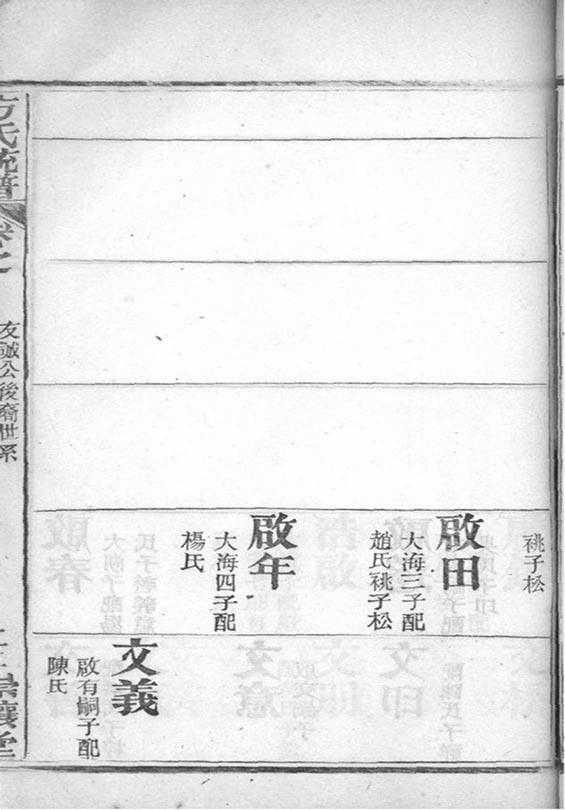 祧子松
啟田
大海三子配
趙氏祧子松
啟年
大海四子配
楊氏
文義
啟有嗣子配
陳氏
方氏統譜
卷之
友誠公後裔世系